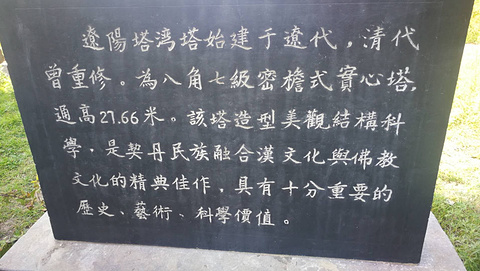 遼陽塔湾塔始建于遼代，清代
曾重修。為八角七級密檐式實心塔，
通高21.66米。該塔造型美觀結構科
學，是契丹民族融合漢文化與佛教
文化的精典佳作，具有十分重要的
歷史、藝術、科學價值。